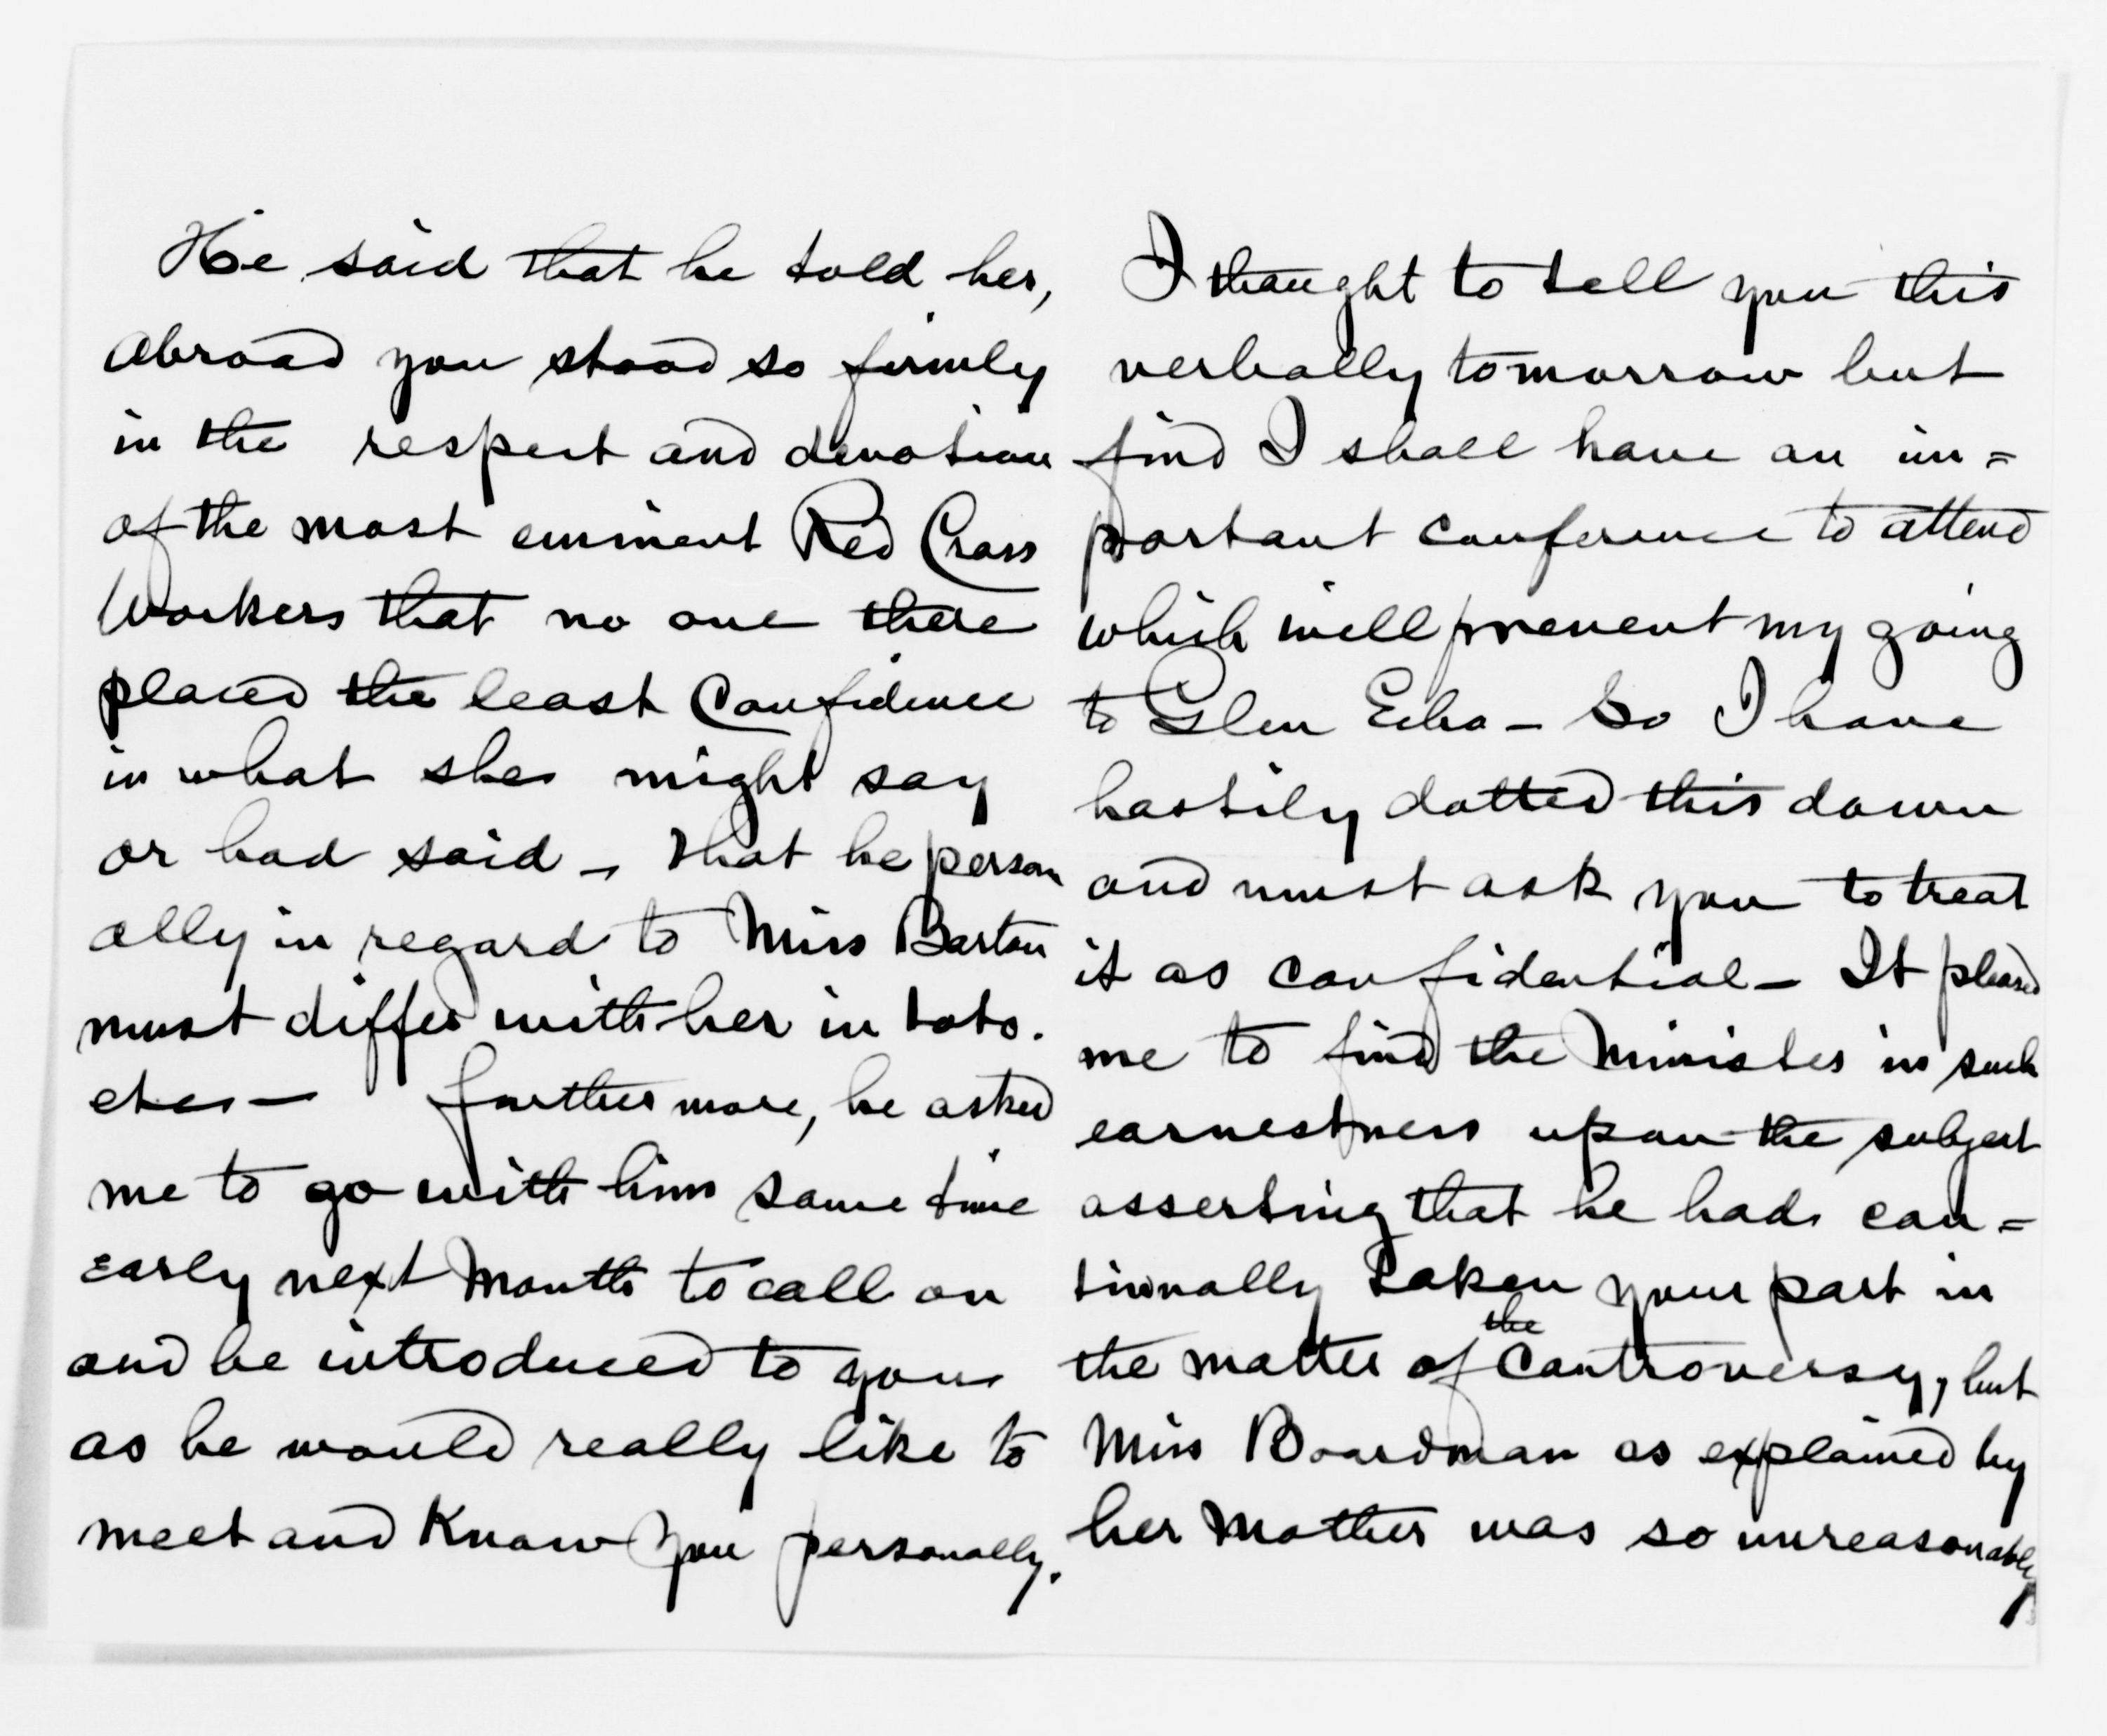 He said that he told her,
abroad you stood so firmly
in the respect and devotion
of the most eminent Red Cross
Workers that no one there
placed the least Confidence
in what she might say
or had said – that he person
ally in regard to Miss Barton
must differ with her in toto.
etc – furthermore, he asked
me to go with him some time
early next Month to call on
and be introduced to you
as he would really like to
meet and Know you personally.
I thought to tell you this
verbally tomorrow but
find I shall have an im=
portant conference to attend
which will prevent my going
to Glen Echo – So I have
hastily dotted this down
and must ask you to treat
it as confidential – It pleased
me to find the Minister in such
earnestness upon the subject
asserting that he had con=
tinually taken your part in
the matter of the Controversy, but
Miss Boardman as explained by
her Mother was so unreasonably